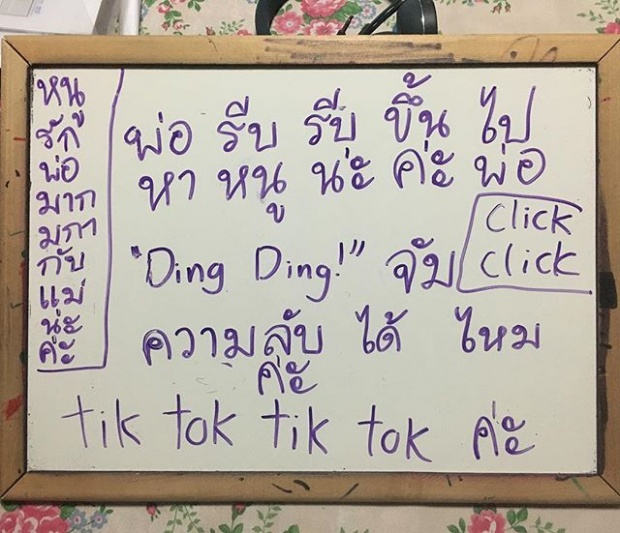 หนู
รัก
พ่อ
มาก
มกา
กับ
แม่
น่ะ
ค่ะ
พ่อ รีบ รีบ ขึ้น ไป
หา หนู น่ะ ค่ะ พ่อ
"Ding Ding!" จัม
click
click
ความลับ ได้ ไหม
ค่ะ
tik tok tik tok ค่ะ